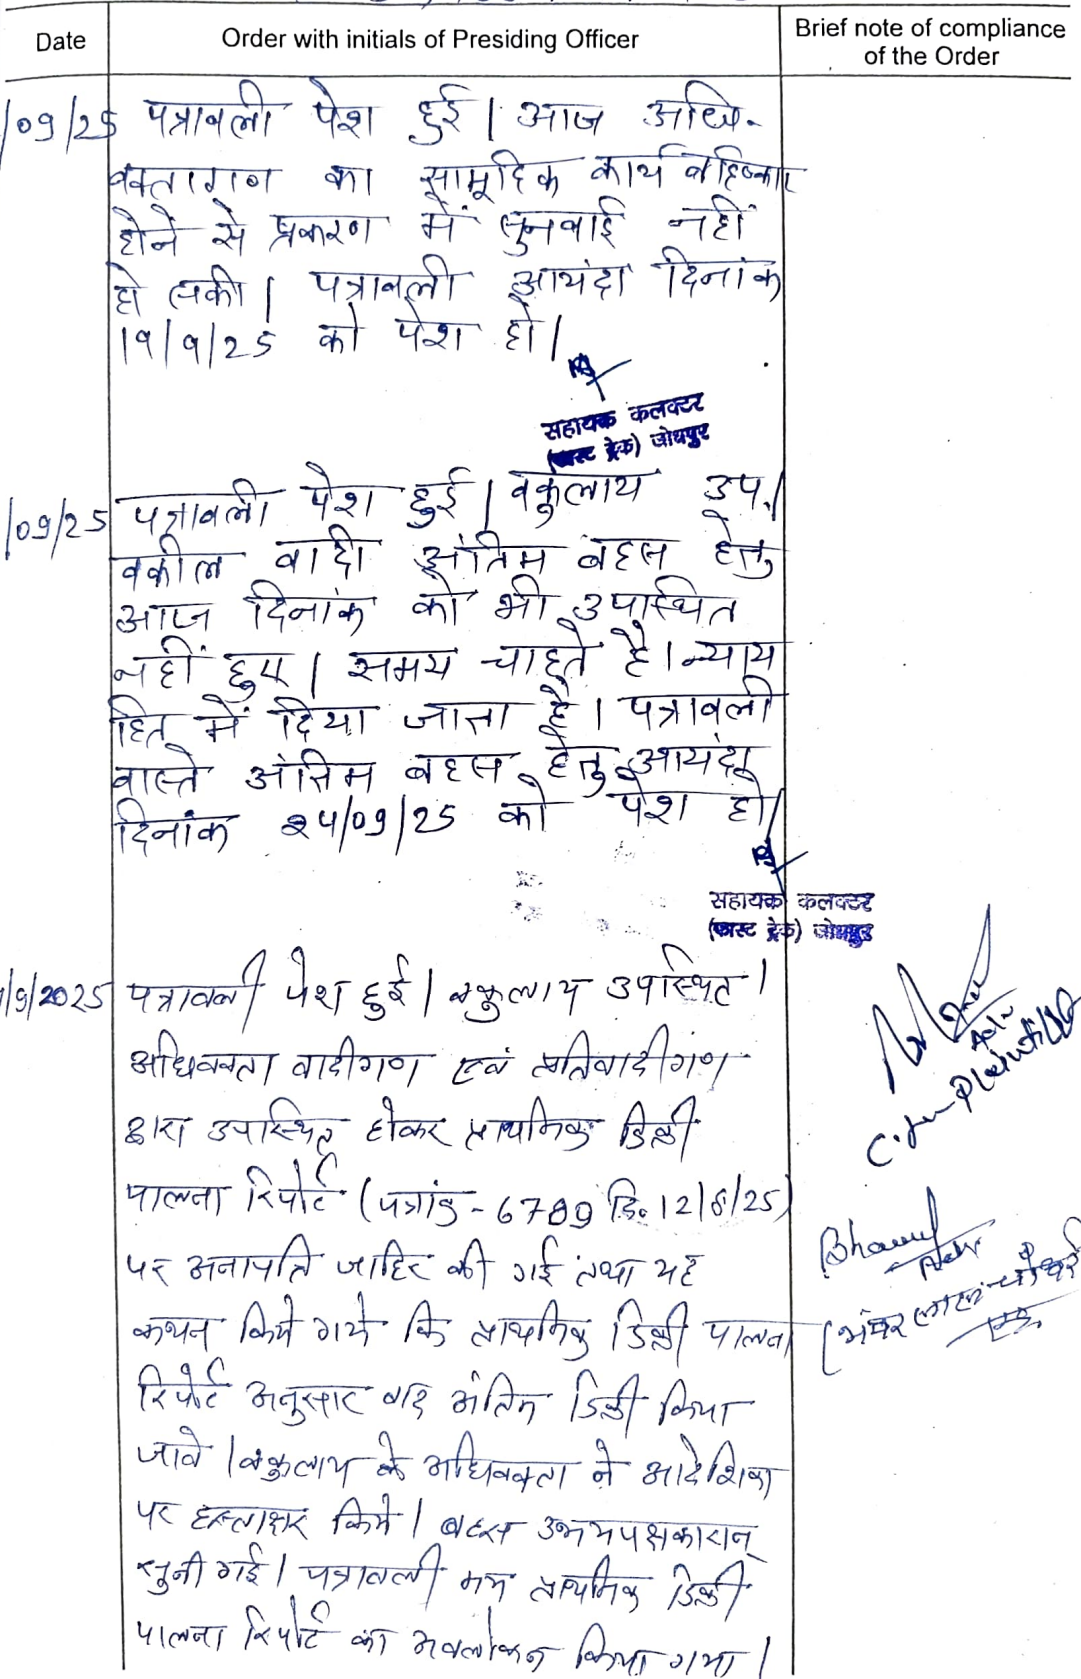 Date
Order with initials of Presiding Officer
Brief note of compliance
of the Order
/09/25 पत्रावली पेश हुई। आज अधि-
वक्तागण का सामूहिक कार्य बहिष्कार
होने से प्रकरण में सुनवाई नहीं
हो सकी। पत्रावली आयंदा दिनांक
19/9/25 को पेश हो।
सहायक कलक्टर
(फास्ट ट्रेक) जोधपुर
/09/25 पत्रावली पेश हुई। वकुलाय उप.।
वकील वादी अंतिम बहस हेतु
आज दिनांक को भी उपास्थित
नहीं हुए। समय चाहते है। न्याय
हित में दिया जाता है। पत्रावली
वास्ते अंतिम बहस हेतु आयंदा
दिनांक 24/09/25 को पेश हो।
सहायक कलक्टर
(फास्ट ट्रेक) जोधपुर
/9/2025 पत्रावली पेश हुई। वकुलाय उपस्थित।
अधिवक्ता वादीगण एवं प्रतिवादीगण
द्वारा उपस्थित होकर प्राथमिक डिक्री
पालना रिपोर्ट (पत्रांक - 6789 दि. 12/8/25)
पर अनापति जाहिर की गई तथा यह
कथन किये गये कि प्राथमिक डिक्री पालना
रिपोर्ट अनुसार वाद अंतिम डिक्री किया
जावे। वकुलाय के अधिवक्ता ने आदेशिका
पर हस्ताक्षर किये। बहस उभयपक्षकारान्
सुनी गई। पत्रावली मय प्राथमिक डिक्री
पालना रिपोर्ट का अवलोकन किया गया।
Adv
Plaintiff
Adv
(भंवर लाल चौधरी